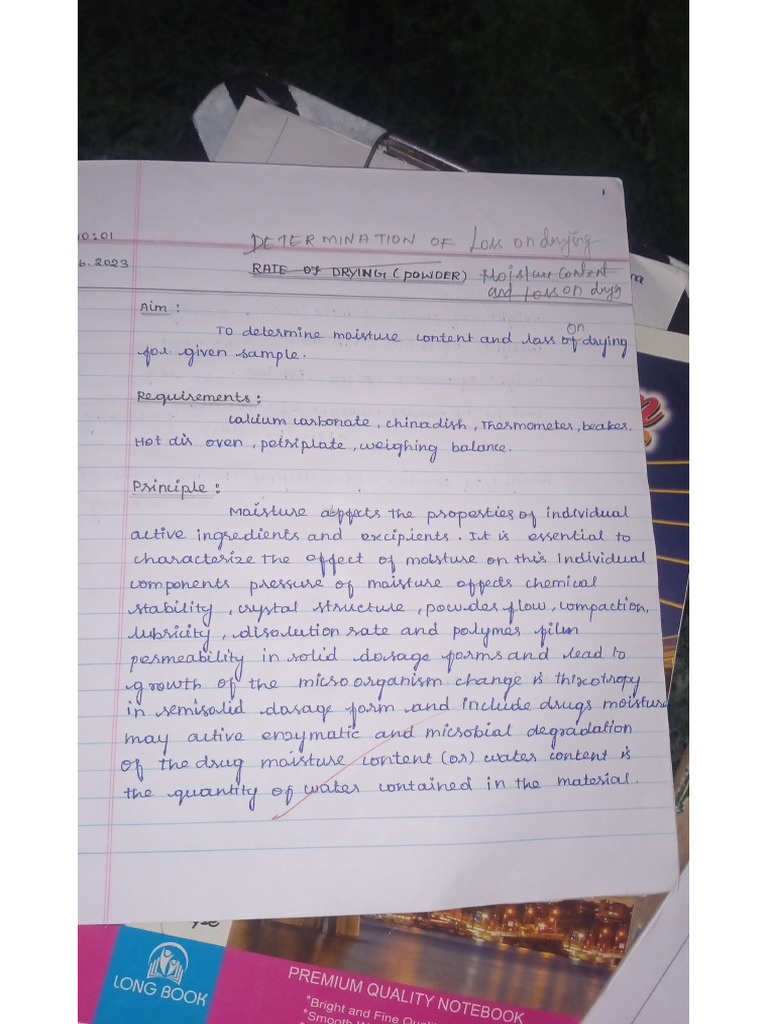 1
10:01
DETERMINATION OF Loss on drying
6.2023
RATE OF DRYING (POWDER) Moisture Content
and Loss on dryg
Aim :
To determine moisture content and loss of on drying
for given sample.
Requirements :
Calcium carbonate, chinadish, Thermometer, beaker,
Hot air oven, petriplate, weighing balance.
Principle :
Moisture affects the properties of individual
active ingredients and excipients. It is essential to
characterize the effect of moisture on this individual
components pressure of moisture affects chemical
stability, crystal structure, powder flow, compaction,
lubricity, disolution rate and polymer film
permeability in solid dosage forms and lead to
growth of the microorganism change is thixotropy
in semisolid dosage form and include drugs moisture
may active enzymatic and microbial degradation
of the drug moisture content (or) water content is
the quantity of water contained in the material.
LONG BOOK
PREMIUM QUALITY NOTEBOOK
*Bright and Fine
*Smooth